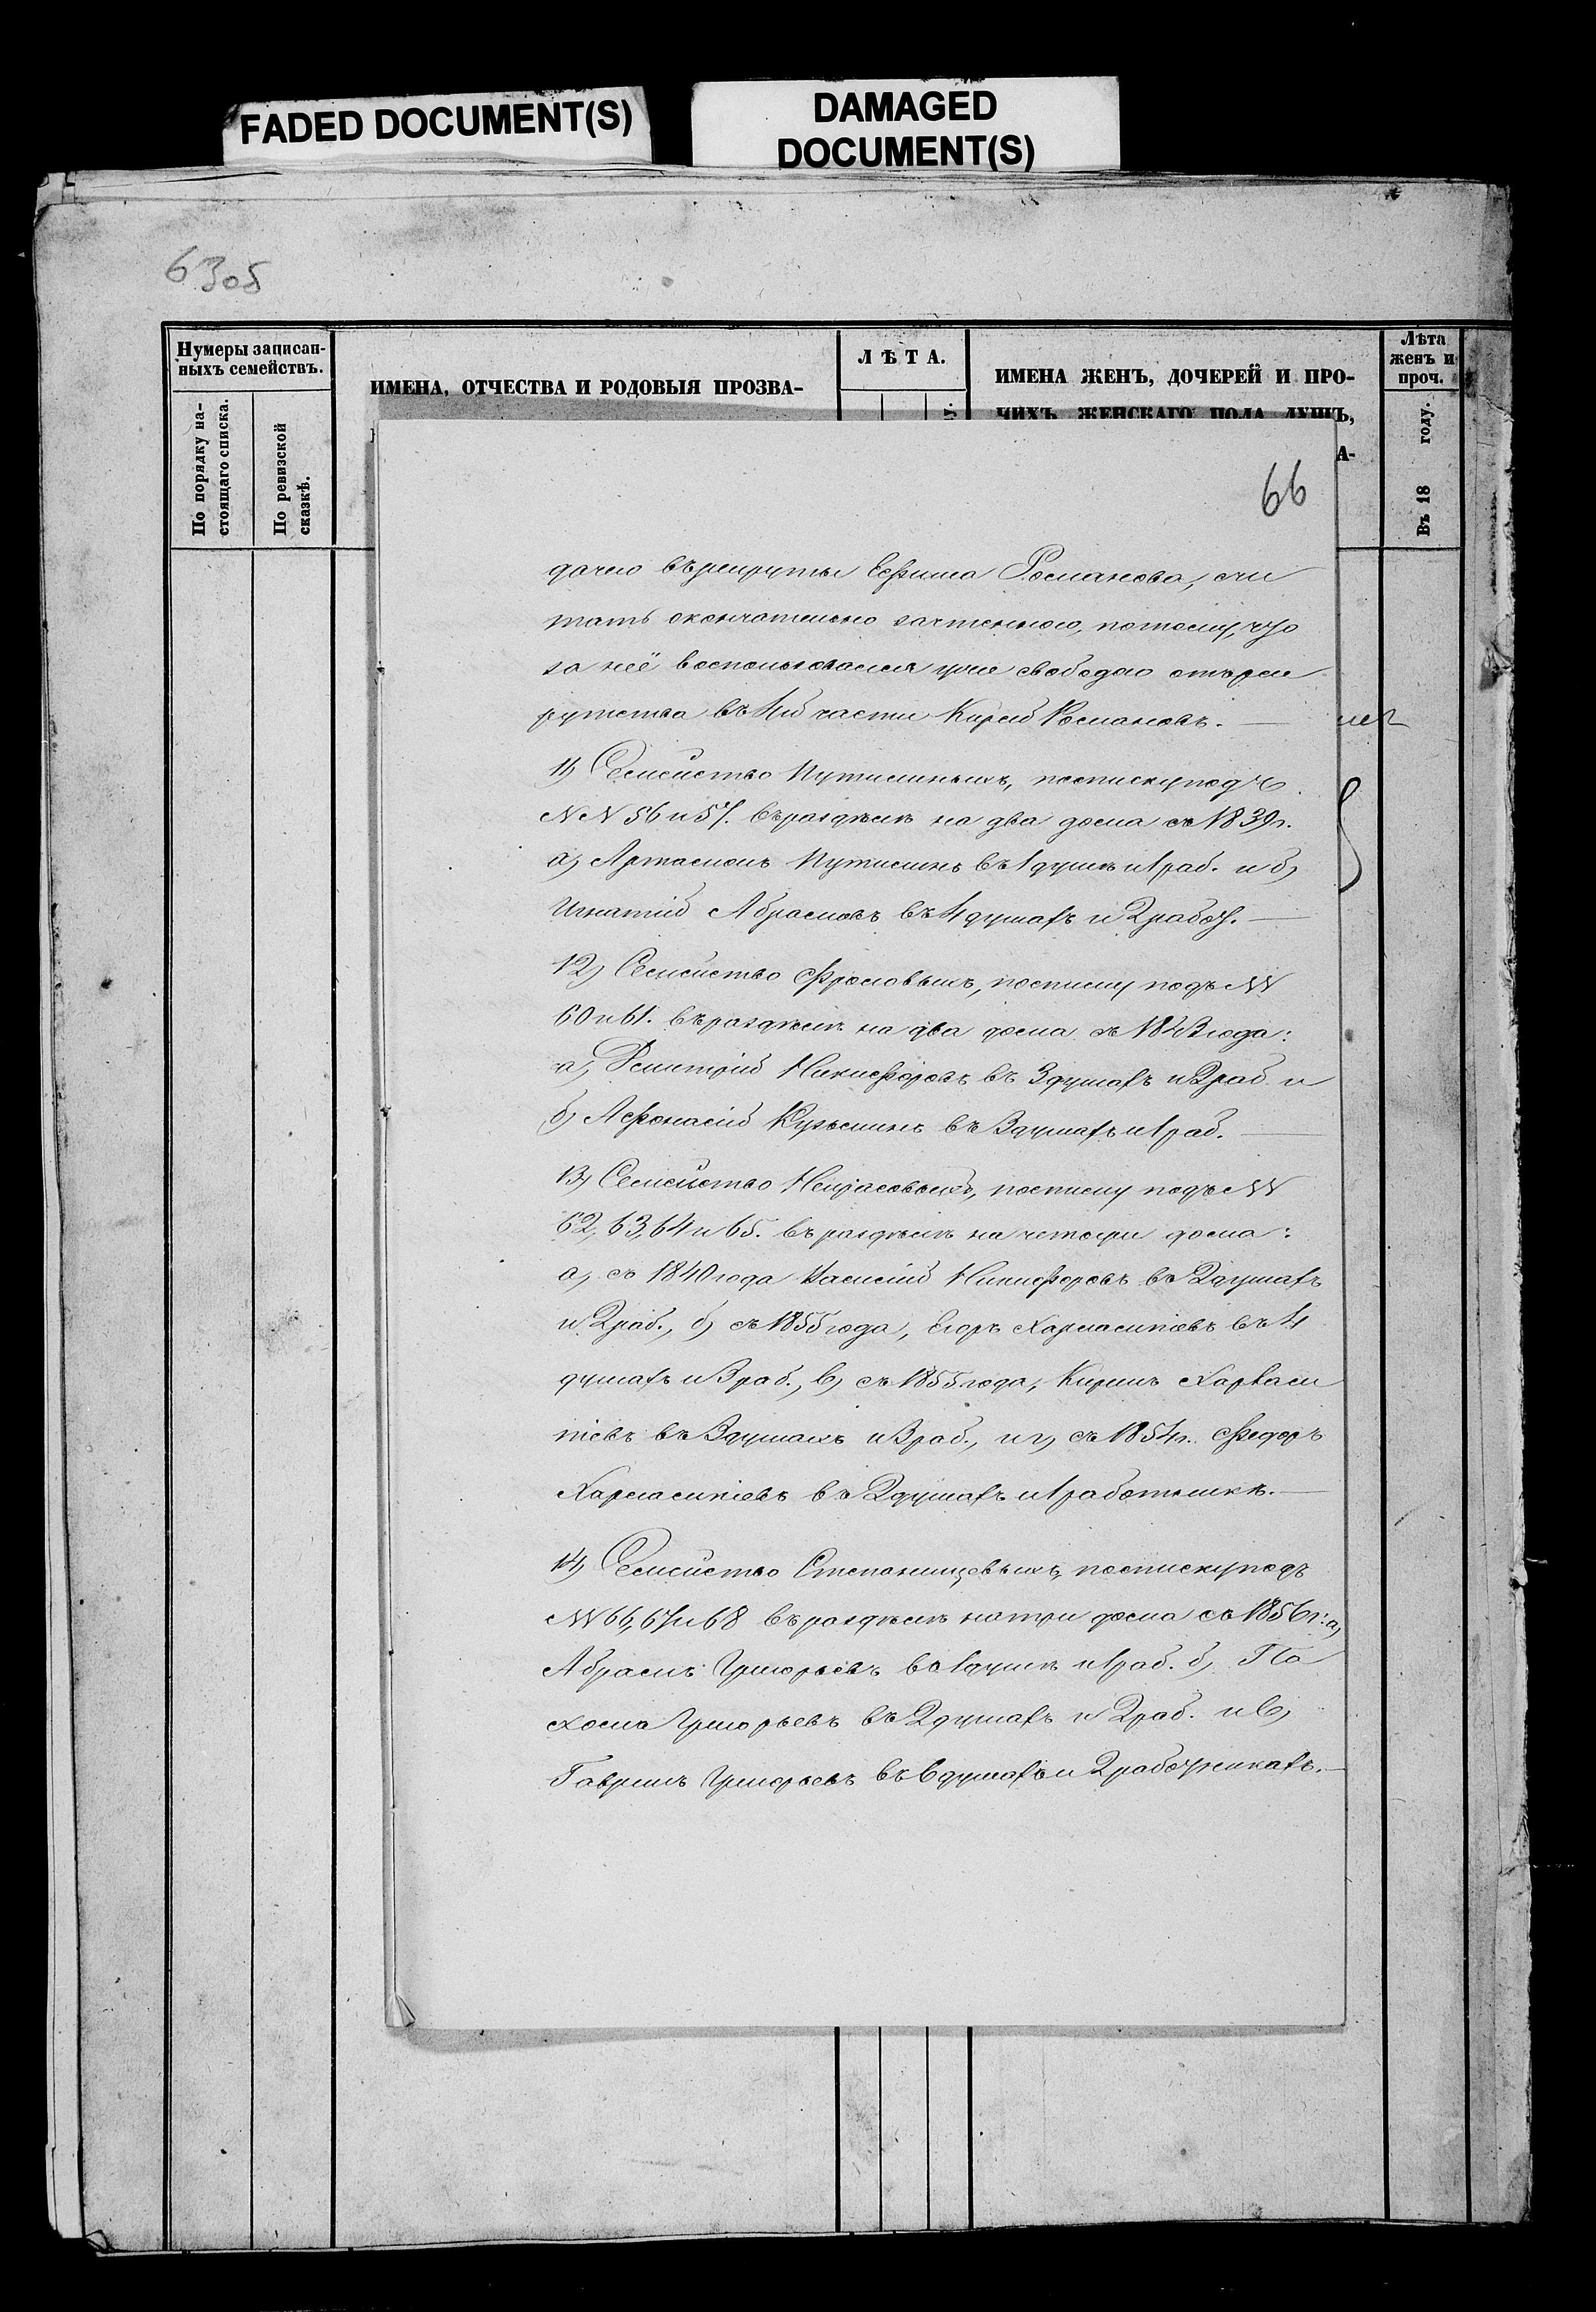 FADED DOCUMENT(S)
DAMAGED
DOCUMENT(S)
63об
Нумеры записан-
ныхъ семействъ.
По порядку на-
стоящаго списка.
По ревизской
сказкѣ.
ИМЕНА, ОТЧЕСТВА И РОДОВЫЯ ПРОЗВА-
ЛѢТА.
ИМЕНА ЖЕНЪ, ДОЧЕРЕЙ И ПРО-
ЧИХЪ ЖЕНСКАГО ПОЛА ДУШЪ,
А-
Лѣта
женъ и
проч.
Въ 18 году.
66
дачею въ рекруты Ефима Романова, счи
тать окончательно зачтенною, потому, что
за неё воспользовался уже свободою отъ рек
рутства въ 4й части Кирей Романовъ. —
11) Семейство Путилиныхъ, по списку подъ
№№ 56 и 57. въ раздѣлѣ на два дома съ 1839 г.
а) Артамонъ Путилинъ въ 1 душѣ и 1 раб. и б)
Игнатій Абрамовъ въ 4 душахъ и 2 работ. —
12) Семейство Фроловыхъ, по списку подъ №№
60 и 61. въ раздѣлѣ на два дома съ года:
а) Дмитрій Никифоровъ въ 3 душахъ и 2 раб. и
б) Афонасій Кузьминъ въ 3 душахъ и 1 раб. —
13) Семейство Некрасовыхъ, по списку подъ №№
62, 63, 64 и 65. въ раздѣлѣ на четыри дома:
а) съ 1840 года Василій Никифоровъ въ 2 душахъ
и 2 раб., б) съ 1855 года, Егоръ Харлампіевъ въ 4
душахъ и 3 раб., в) съ 1855 года, Кирилъ Харлам
піевъ въ 3 душахъ и 3 раб., и г) съ 1854 г. Федоръ
Харлампіевъ въ 2 душахъ и 1 работникѣ. —
14) Семейство Степанищевыхъ, по списку подъ
№№ 66, 67 и 68 въ раздѣлѣ на три дома съ 1856 г: а)
Абрамъ Григорьевъ въ 1 душѣ и 1 раб. б) Па
хома Григорьевъ въ 2 душахъ и 2 раб. и в)
Гаврилъ Григорьевъ въ 6 душахъ и 2 работникахъ. —